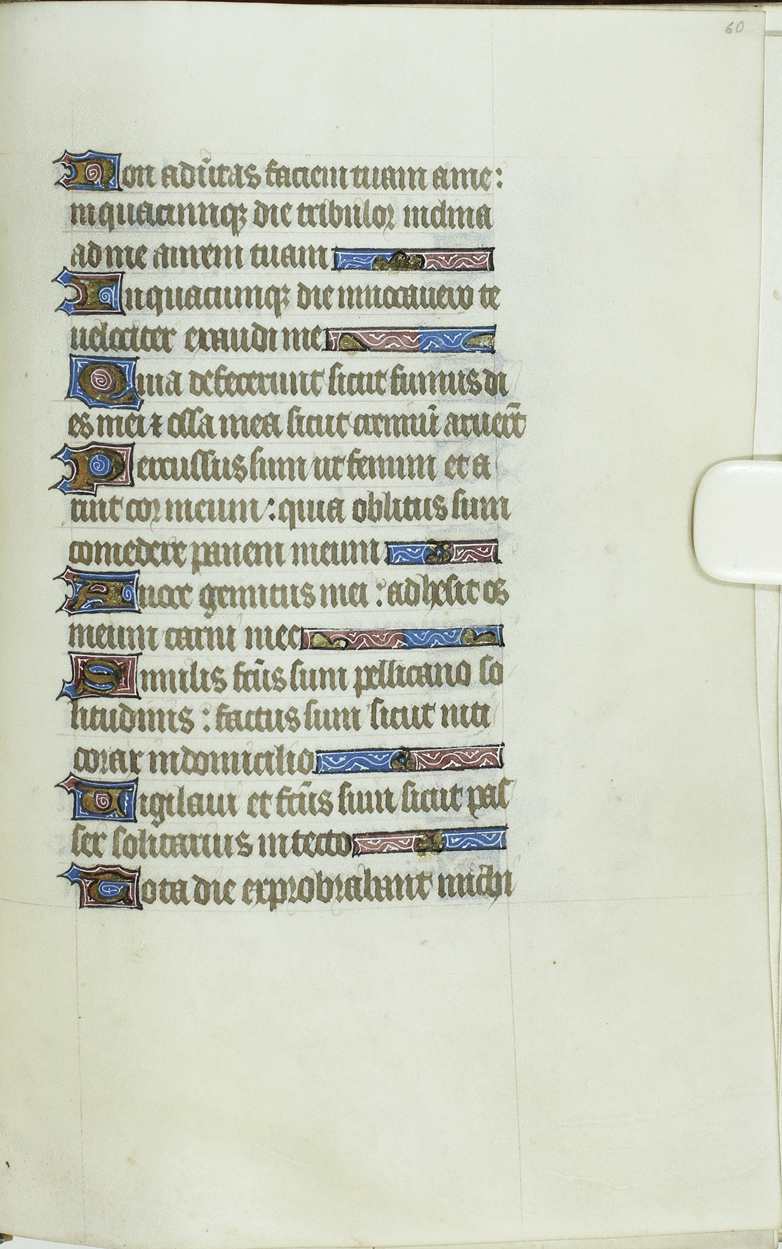 60
Non adu̅tas faciem tuam a me:
in quacunnqꝫ die tribulor inclina
ad me aurem tuam
In quacumqꝫ die inuocauero te
uelociter exaudi me
Quia defecerunt sicut fumus di
es mei ⁊ ossa mea sicut cremiu̅ aruer̅t
Percussus sum ut fenum et a
ruit cor meum : quia oblitus sum
comedere panem meum
A uoce gemitus mei : adhesit os
meum carni mee
Similis fc̅us sum pellicano so
litudinis : factus sum sicut niti
corax in domicilio
Uigilaui et fc̅us sum sicut pas
ser solitarius in tecto
Tota die exprobrabant michi